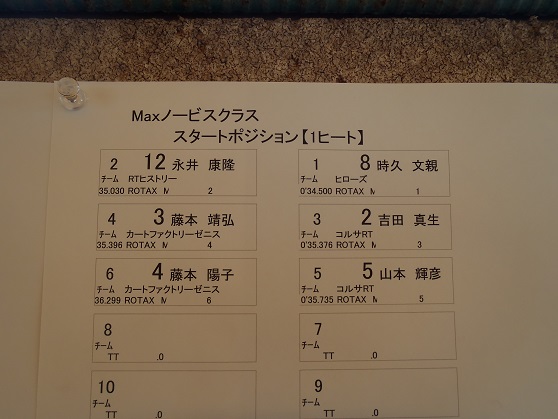 Maxノービスクラス
スタートポジション【1ヒート】
2 12 永井 康隆
チーム RTヒストリー
35.030 ROTAX M 2
1 8 時久 文親
チーム ヒローズ
0'34.500 ROTAX M 1
4 3 藤本 靖弘
チーム カートファクトリーゼニス
35.396 ROTAX M 4
3 2 吉田 真生
チーム コルサRT
0'35.376 ROTAX M 3
6 4 藤本 陽子
チーム カートファクトリーゼニス
36.299 ROTAX M 6
5 5 山本 輝彦
チーム コルサRT
0'35.735 ROTAX M 5
8
チーム
TT .0
7
チーム
TT .0
10
チーム
TT .0
9
チーム
TT .0